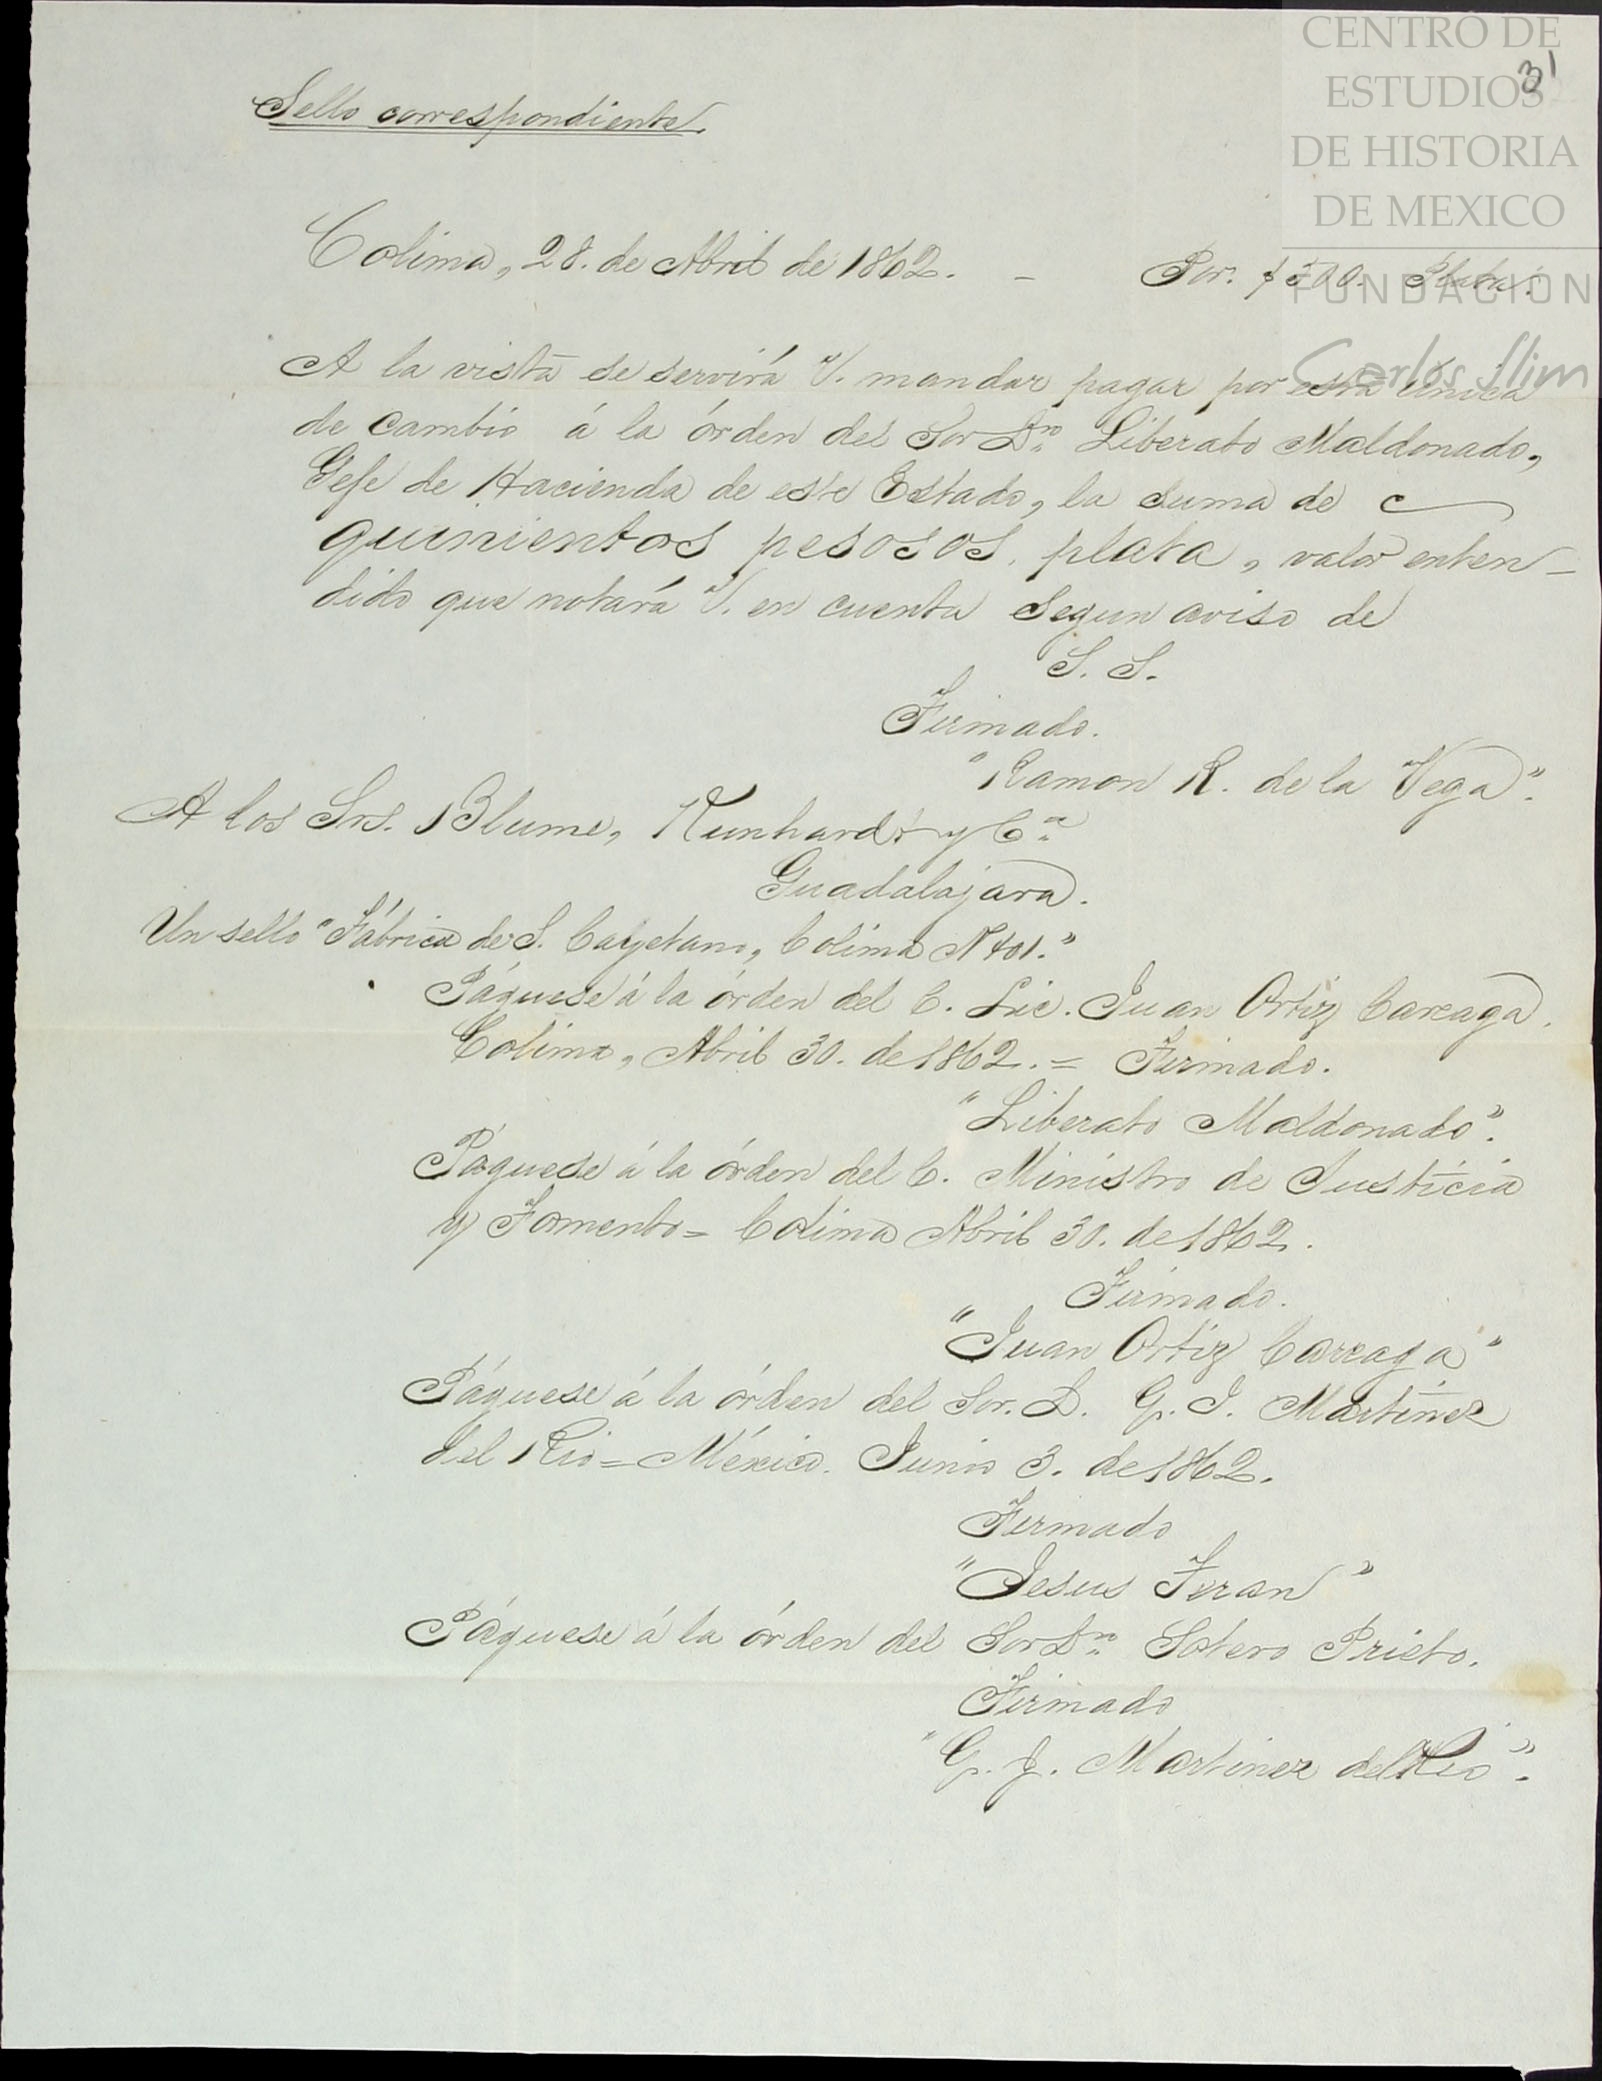 CENTRO DE
ESTUDIOS
DE HISTORIA
DE MEXICO
FUNDACIÓN
Carlos Slim
31
Sello correspondiente.
Colima, 28. de Abril de 1862. - Por. $500. Plata.
A la vista se servirá V. mandar pagar por esta única
de cambio á la órden del Sor Dn. Liberato Maldonado,
Gefe de Hacienda de este Estado, la suma de
quinientos pesosos, plata, valor enten-
dido que notará V. en cuenta segun aviso de
S. S.
Firmado.
"Ramon R. de la Vega".
A los Srs. Blume, Kunhardt y Ca.
Guadalajara.
Un sello "Fábrica de S. Cayetano, Colima N 401."
Páguese á la órden del C. Lic. Juan Ortiz Careaga.
Colima, Abril 30. de 1862. = Firmado.
"Liberato Maldonado".
Páguese á la órden del C. Ministro de Justicia
y Fomento = Colima Abril 30. de 1862.
Firmado.
"Juan Ortiz Careaga"
Páguese á la órden del Sor. D. G. J. Martinez
del Rio = México. Junio 3. de 1862.
Firmado
"Jesus Teran"
Páguese á la órden del Sor Dn. Sotero Prieto.
Firmado
"G. J. Martinez del Rio".